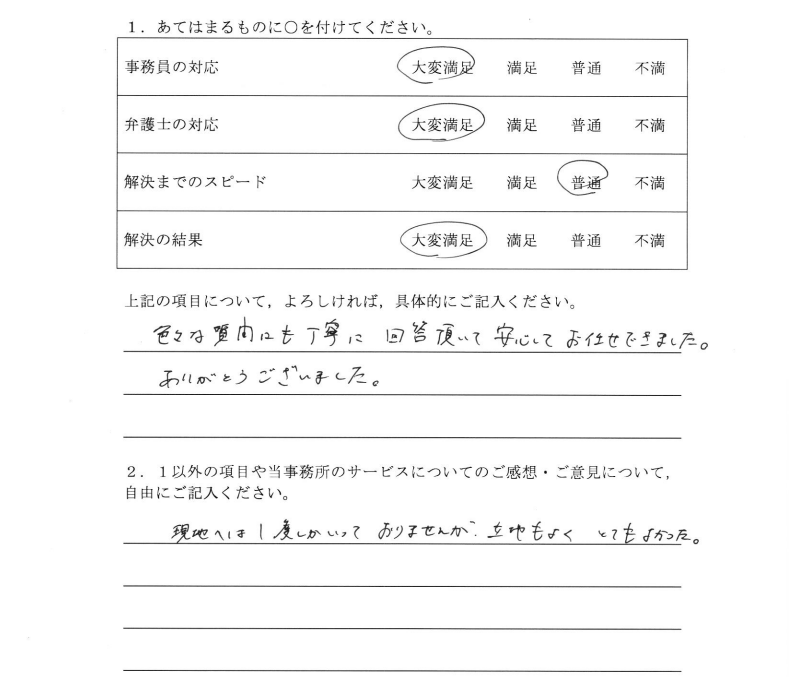 １．あてはまるものに○を付けてください。
事務員の対応 大変満足 満足 普通 不満
弁護士の対応 大変満足 満足 普通 不満
解決までのスピード 大変満足 満足 普通 不満
解決の結果 大変満足 満足 普通 不満
上記の項目について，よろしければ，具体的にご記入ください。
色々な質問にも丁寧に 回答頂いて 安心して お任せできました。
ありがとうございました。
２．１以外の項目や当事務所のサービスについてのご感想・ご意見について，
自由にご記入ください。
現地へは１度しかいって おりませんが、立地もよく とてもよかった。